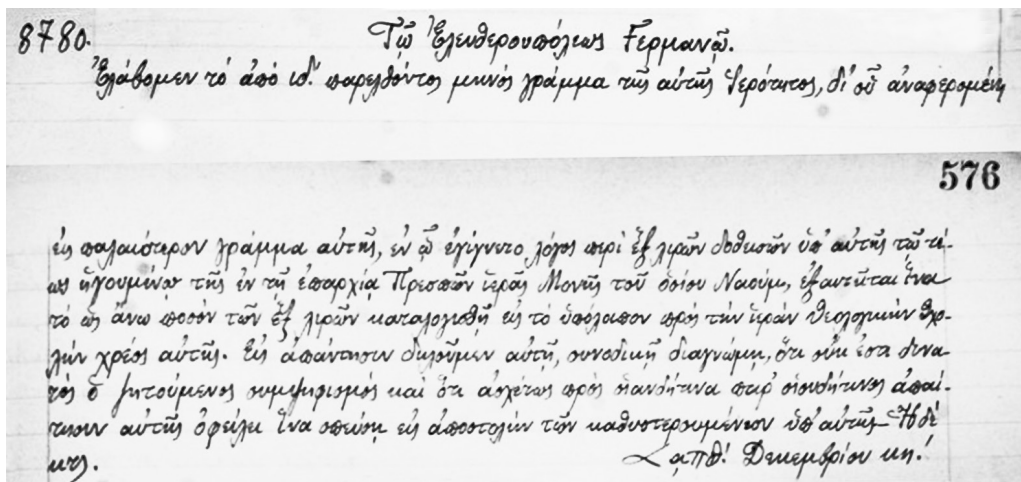 8780.
Τῷ Ἐλευθερουπόλεως Γερμανῷ.
Ἐλάβομεν τὸ ἀπὸ ιδ΄ παρελθόντος μηνὸς γράμμα τῆς αὐτῆς Ἱερότητος, δι' οὗ ἀναφερομένη
576
εἰς παλαιότερον γράμμα αὐτῆς, ἐν ᾧ ἐγίγνετο λόγος περὶ ἓξ λιρῶν δοθεισῶν ὑπ' αὐτῆς τῷ τέ-
ως ἡγουμένῳ τῆς ἐν τῇ ἐπαρχίᾳ Πρεσπῶν ἱερᾶς Μονῆς τοῦ ὁσίου Ναούμ, ἐξαιτεῖται ἵνα
τὸ ὡς ἄνω ποσὸν τῶν ἓξ λιρῶν καταλογισθῇ εἰς τὸ ὑπόλοιπον πρὸς τὴν ἱερὰν Θεολογικὴν Σχο-
λὴν χρέος αὐτῆς. Εἰς ἀπάντησιν δηλοῦμεν αὐτῇ, συνοδικῇ διαγνώμῃ, ὅτι οὐκ ἔστι δυνα-
τὸς ὁ ζητούμενος συμψηφισμὸς καὶ ὅτι ἀσχέτως πρὸς οἱανδήτινα παρ' οἱουδήτινος ἀπαί-
τησιν αὐτῆς ὀφείλει ἵνα σπεύσῃ εἰς ἀποστολὴν τῶν καθυστερουμένων ὑπ' αὐτῆς. Ἡ δὲ
κτλ. ͵αϡπθ΄ Δεκεμβρίου κη΄.